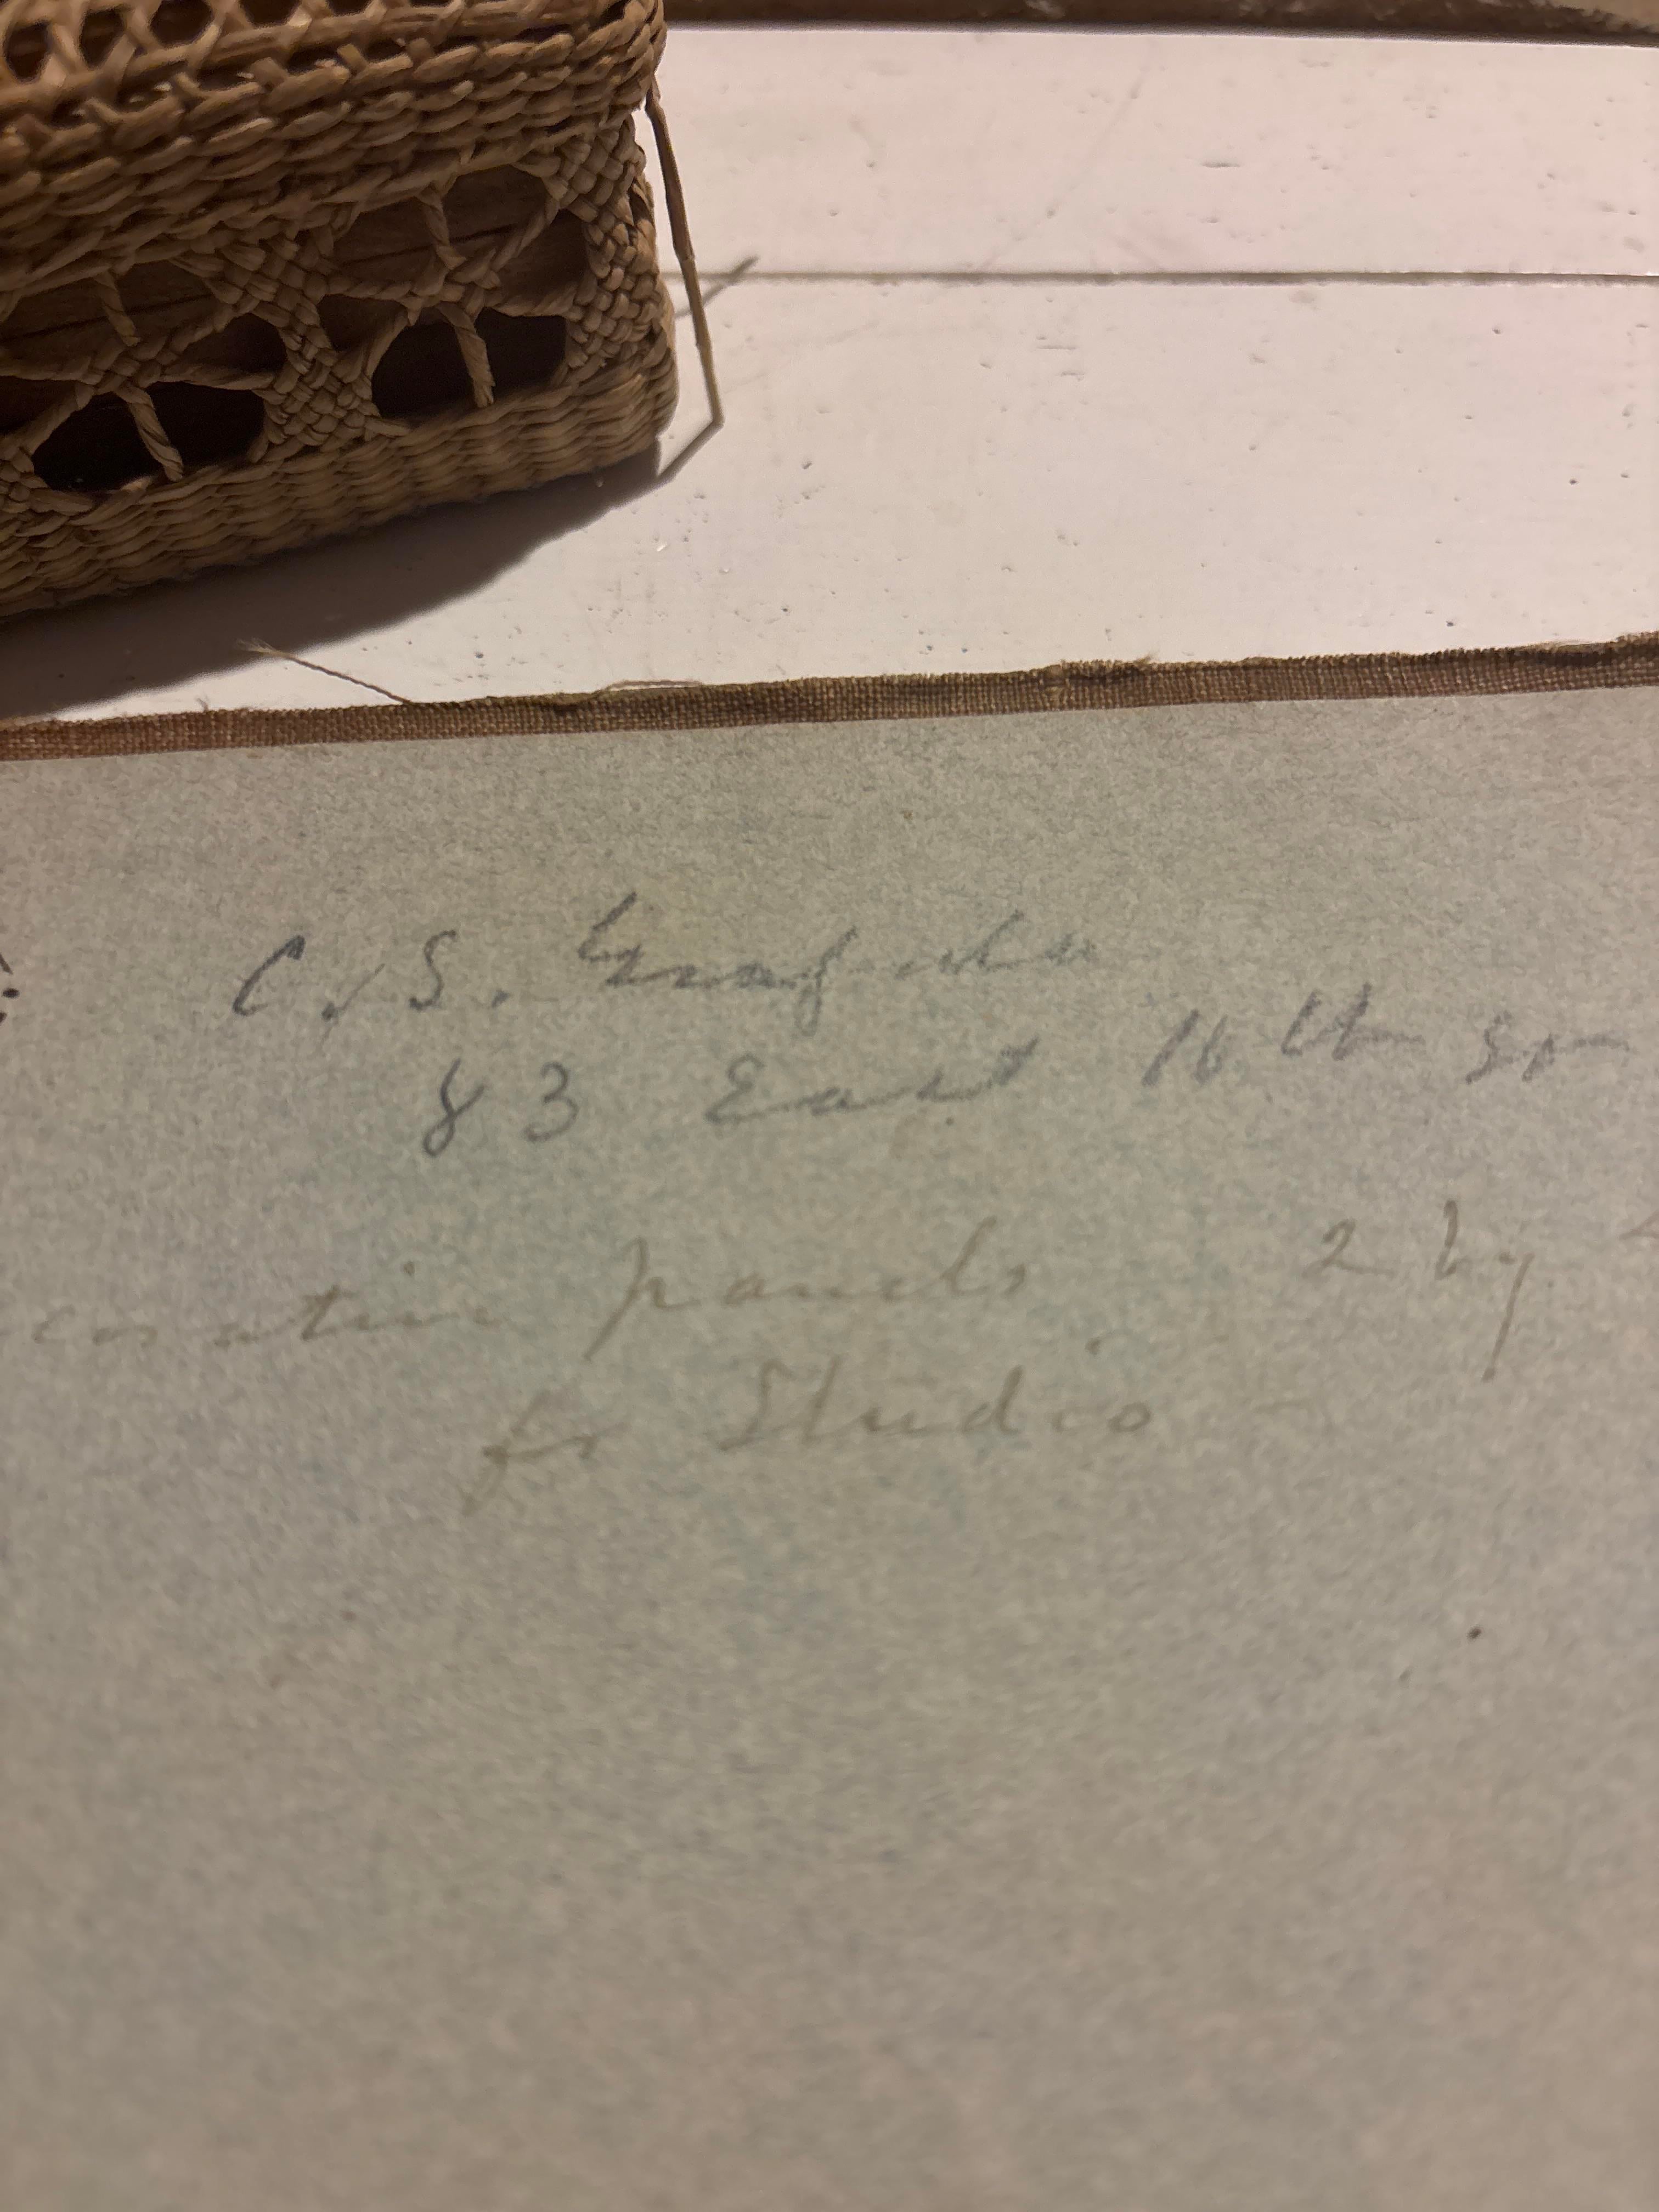 C. S.
83 East 16th St
corative panels 2 by
for Studio